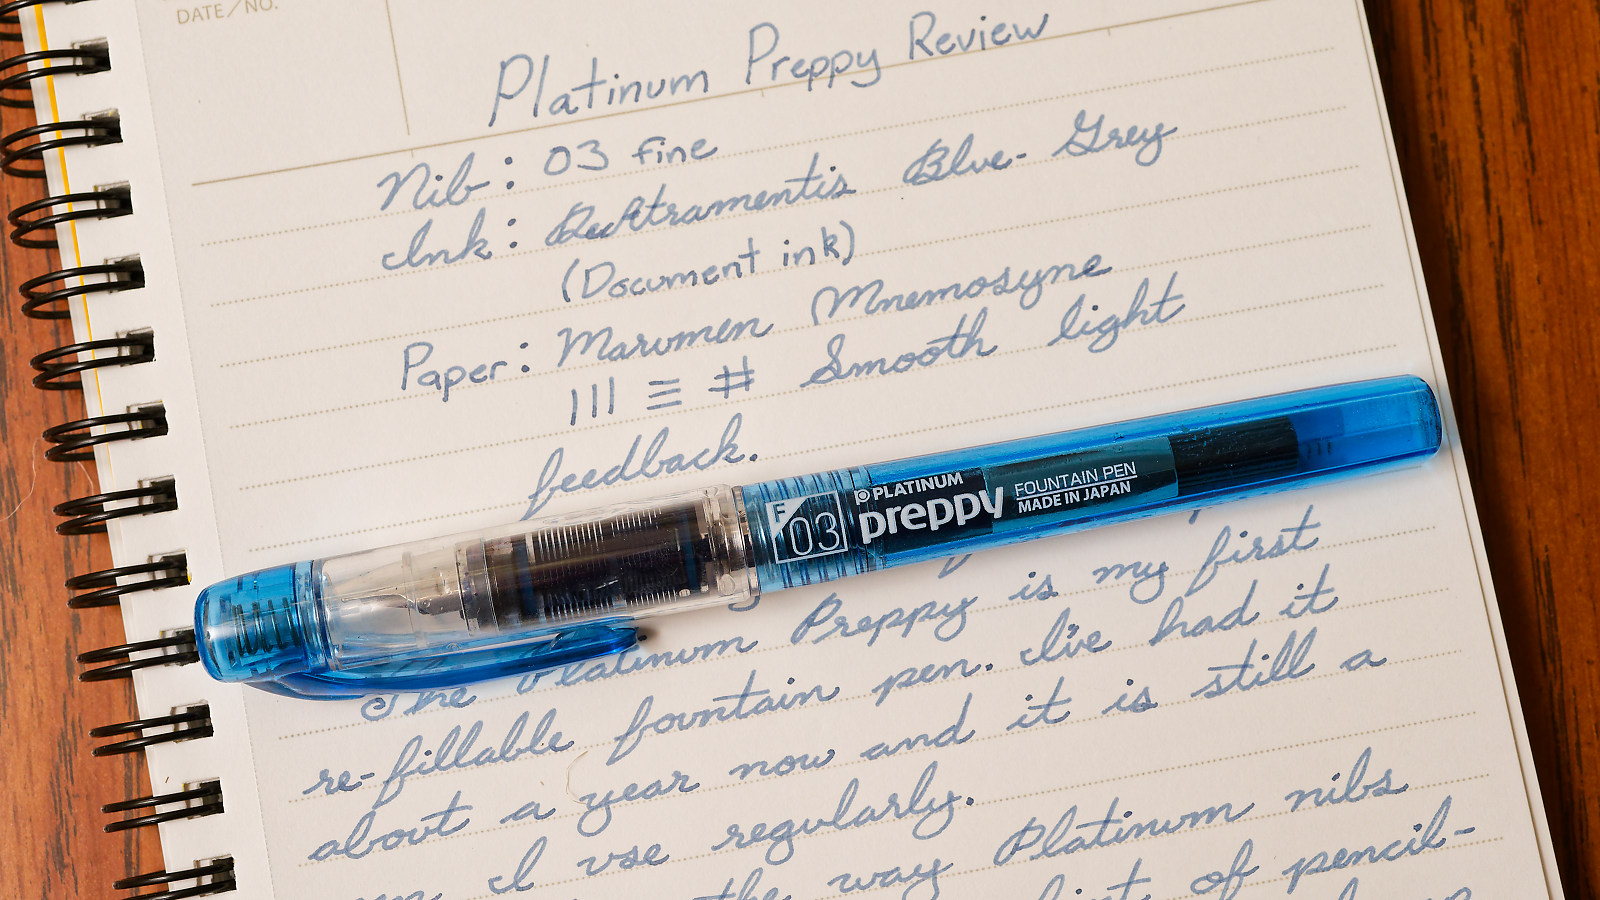 DATE/NO.
Platinum Preppy Review
Nib: 03 fine
Ink: DeAtramentis Blue-Grey
(Document ink)
Paper: Marumen Mnemosyne
||| ≡ # Smooth light
feedback.
F 03 PLATINUM preppy FOUNTAIN PEN
MADE IN JAPAN
The Platinum Preppy is my first
re-fillable fountain pen. I've had it
about a year now and it is still a
I use regularly.
the way Platinum nibs
of pencil-